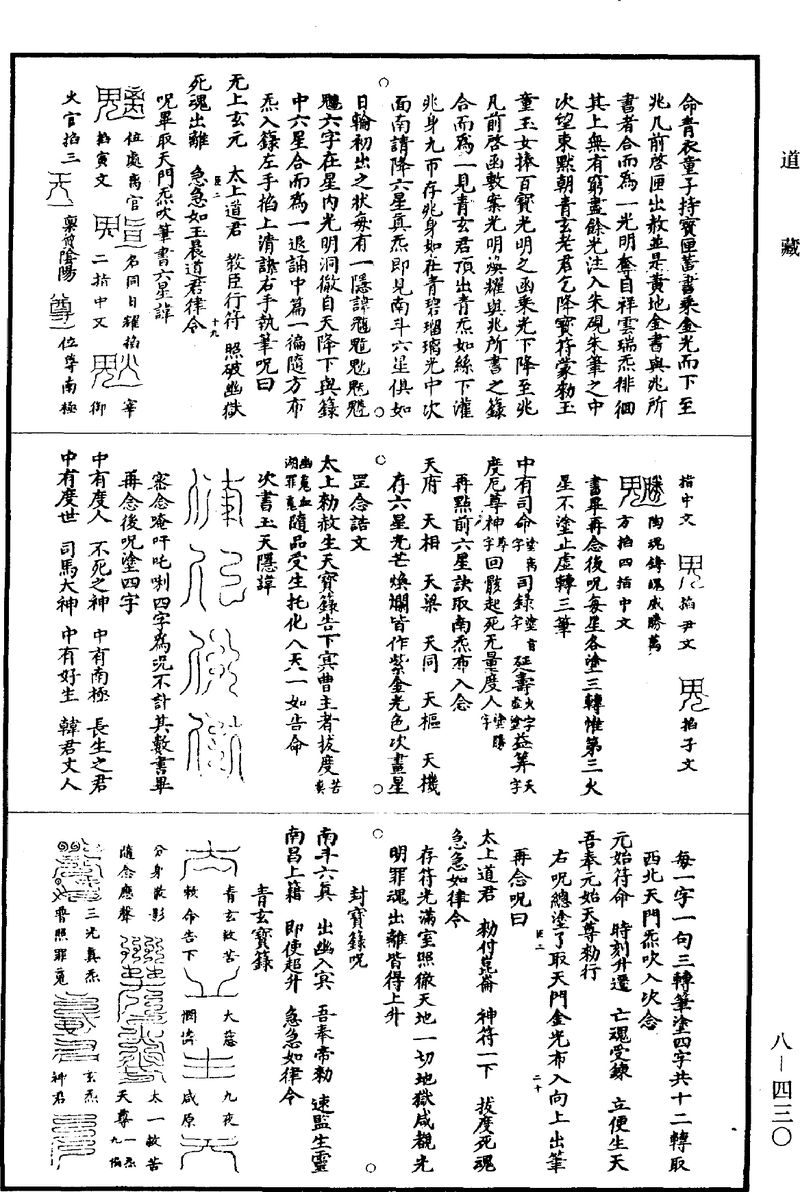 道藏
命青衣童子持寶匣蓄書乘金光而下至
兆几前啓匣出赦並是黃地金書與兆所
書者合而爲一光明奪目祥雲瑞炁徘徊
其上無有窮盡餘光注入朱硯朱筆之中
次望東默朝青玄老君乞降寶符蒙勑玉
童玉女捧百寶光明之函乘光下降至兆
几前啓函敷案光明煥耀與兆所書之籙
合而爲一見青玄君頂出青炁如絲下灌
兆身九帀存兆身如在青碧瑠璃光中次
面南請降六星真炁即見南斗六星俱如
日輪初出之狀每有一隱諱
六字在星內光明洞徹自天降下與籙
中六星合而爲一退誦中篇一徧隨方布
炁入籙左手掐上清訣右手執筆呪曰
无上玄元 太上道君 教臣行符 照破幽獄
死魂出離 急急如玉晨道君律令
十九
呪畢取天門炁吹筆書六星諱
位處离宮 名同日耀掐 宰
掐寅文 二指中文 御
火官掐三 稟質陰陽 位尊南極
指中文 掐尹文 掐子文
陶魂鑄魄威勝萬
方掐四指中文
書畢再念後呪每星各塗三轉惟第三火
星不塗止虛轉三筆
中有司命塗离字司錄塗旨字延壽火字虛塗益筭天字
度厄尊神尊字回骸起死无量度人塗勝字
再點前六星訣取南炁布入念
天府 天相 天梁 天同 天樞 天機
存六星光芒煥爛皆作紫金光色次畫星
罡念誥文
太上勑赦生天寶籙告下冥曹主者拔度苦
幽魂血湖罪魂隨品受生托化入天一如告命
次書玉天隱諱
密念唵吽吒唎四字爲呪不計其數書畢
再念後呪塗四字
中有度人 不死之神 中有南極 長生之君
中有度世 司馬大神 中有好生 韓君丈人
每一字一句三轉筆塗四字共十二轉取
西北天門炁吹入次念
元始符命 時刻升遷 亡魂受鍊 立便生天
吾奉元始天尊勑行
右呪總塗了取天門金光布入向上出筆
再念呪曰
二十
太上道君 勑付崑崙 神符一下 拔度死魂
急急如律令
存符光滿室照徹天地一切地獄咸覩光
明罪魂出離皆得上升
封寶籙呪
南斗六真 出幽入冥 吾奉帝勑 速監生靈
南昌上籍 即使超升 急急如律令
青玄寶籙
青玄救苦 大慈 九夜
敕命告下 惘濟 咸原
分身散影 太一救苦
隨念應聲 天尊一炁九徧
三光真炁 玄炁
普照罪魂 神君
八—四三〇